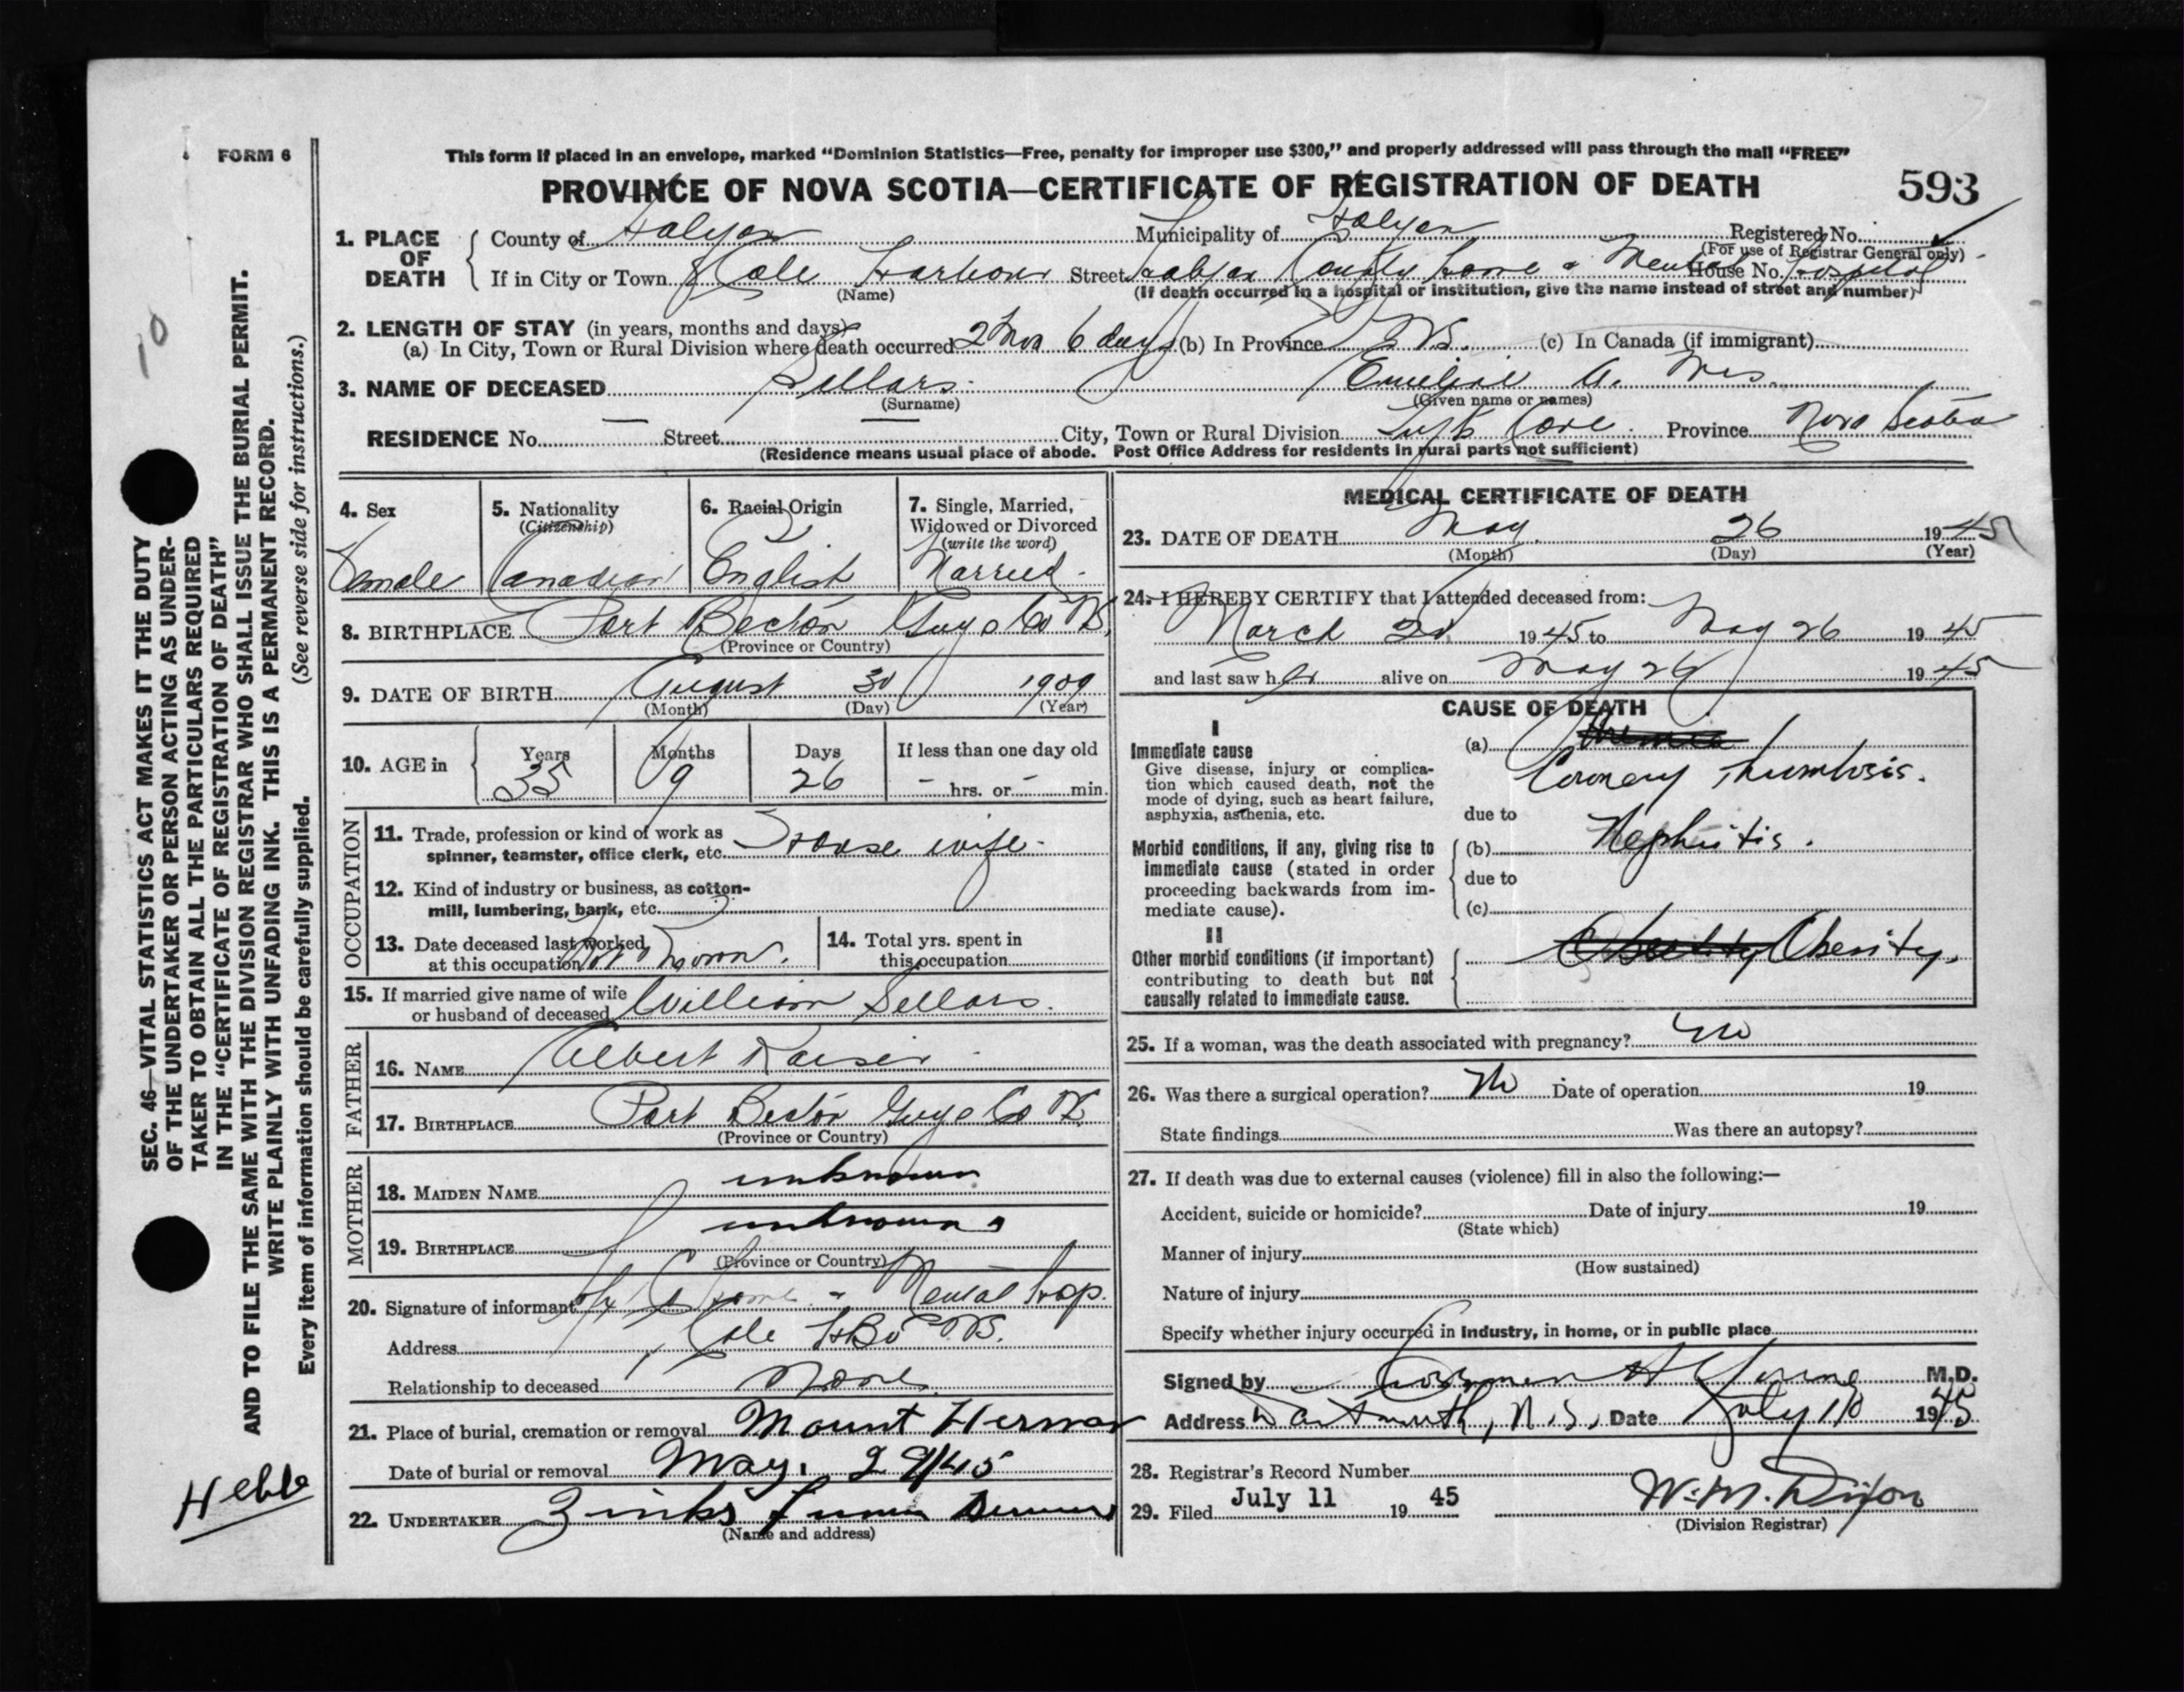 FORM 6
This form if placed in an envelope, marked “Dominion Statistics—Free, penalty for improper use $300,” and properly addressed will pass through the mail “FREE”
PROVINCE OF NOVA SCOTIA—CERTIFICATE OF REGISTRATION OF DEATH 593
1. PLACE OF DEATH
County of Halifax Municipality of Halifax Registered No.
(For use of Registrar General only)
If in City or Town Cole Harbour Street Halifax County Home & Mental Hospital House No.
(Name) (If death occurred in a hospital or institution, give the name instead of street and number)
2. LENGTH OF STAY (in years, months and days)
(a) In City, Town or Rural Division where death occurred 2 Mos 6 days (b) In Province N.S. (c) In Canada (if immigrant)
3. NAME OF DECEASED Sellars Emeline A. Mrs.
(Surname) (Given name or names)
RESIDENCE No. — Street — City, Town or Rural Division Cove Province Nova Scotia
(Residence means usual place of abode. Post Office Address for residents in rural parts not sufficient)
4. Sex
Female
5. Nationality
(Citizenship)
Canadian
6. Racial Origin
English
7. Single, Married,
Widowed or Divorced
(write the word)
Married.
8. BIRTHPLACE Port Becton Guys Co N.S.
(Province or Country)
9. DATE OF BIRTH August 30 1909
(Month) (Day) (Year)
10. AGE in
Years Months Days If less than one day old
35 9 26 – hrs. or – min.
OCCUPATION
11. Trade, profession or kind of work as
spinner, teamster, office clerk, etc. House wife.
12. Kind of industry or business, as cotton-
mill, lumbering, bank, etc.
13. Date deceased last worked
at this occupation Not Known.
14. Total yrs. spent in
this occupation
15. If married give name of wife
or husband of deceased William Sellars.
FATHER
16. NAME Albert Kaiser
17. BIRTHPLACE Port Becton Guys Co N.S.
(Province or Country)
MOTHER
18. MAIDEN NAME unknown
19. BIRTHPLACE unknown
(Province or Country)
20. Signature of informant Hfx Co Home & Mental Hosp.
Address Cole Hbr N.S.
Relationship to deceased None.
21. Place of burial, cremation or removal Mount Hermon
Date of burial or removal May. 29/45
22. UNDERTAKER Zinks
(Name and address)
MEDICAL CERTIFICATE OF DEATH
23. DATE OF DEATH May 26 1945
(Month) (Day) (Year)
24. I HEREBY CERTIFY that I attended deceased from:
March 20 1945 to May 26 1945
and last saw her alive on May 26 1945
CAUSE OF DEATH
I
Immediate cause
Give disease, injury or complica-
tion which caused death, not the
mode of dying, such as heart failure,
asphyxia, asthenia, etc.
(a) Coronary Thrombosis.
due to
Morbid conditions, if any, giving rise to
immediate cause (stated in order
proceeding backwards from im-
mediate cause).
(b) Nephritis.
due to
(c)
II
Other morbid conditions (if important)
contributing to death but not
causally related to immediate cause.
Obesity.
25. If a woman, was the death associated with pregnancy? no
26. Was there a surgical operation? No Date of operation 19
State findings Was there an autopsy?
27. If death was due to external causes (violence) fill in also the following:—
Accident, suicide or homicide? Date of injury 19
(State which)
Manner of injury
(How sustained)
Nature of injury
Specify whether injury occurred in industry, in home, or in public place
Signed by M.D.
Address Dartmouth, N.S. Date July 10 1945
28. Registrar's Record Number
29. Filed July 11 1945 W. M. Dixon
(Division Registrar)
SEC. 46—VITAL STATISTICS ACT MAKES IT THE DUTY
OF THE UNDERTAKER OR PERSON ACTING AS UNDER-
TAKER TO OBTAIN ALL THE PARTICULARS REQUIRED
IN THE “CERTIFICATE OF REGISTRATION OF DEATH”
AND TO FILE THE SAME WITH THE DIVISION REGISTRAR WHO SHALL ISSUE THE BURIAL PERMIT.
WRITE PLAINLY WITH UNFADING INK. THIS IS A PERMANENT RECORD.
Every item of information should be carefully supplied. (See reverse side for instructions.)
10
Hebb